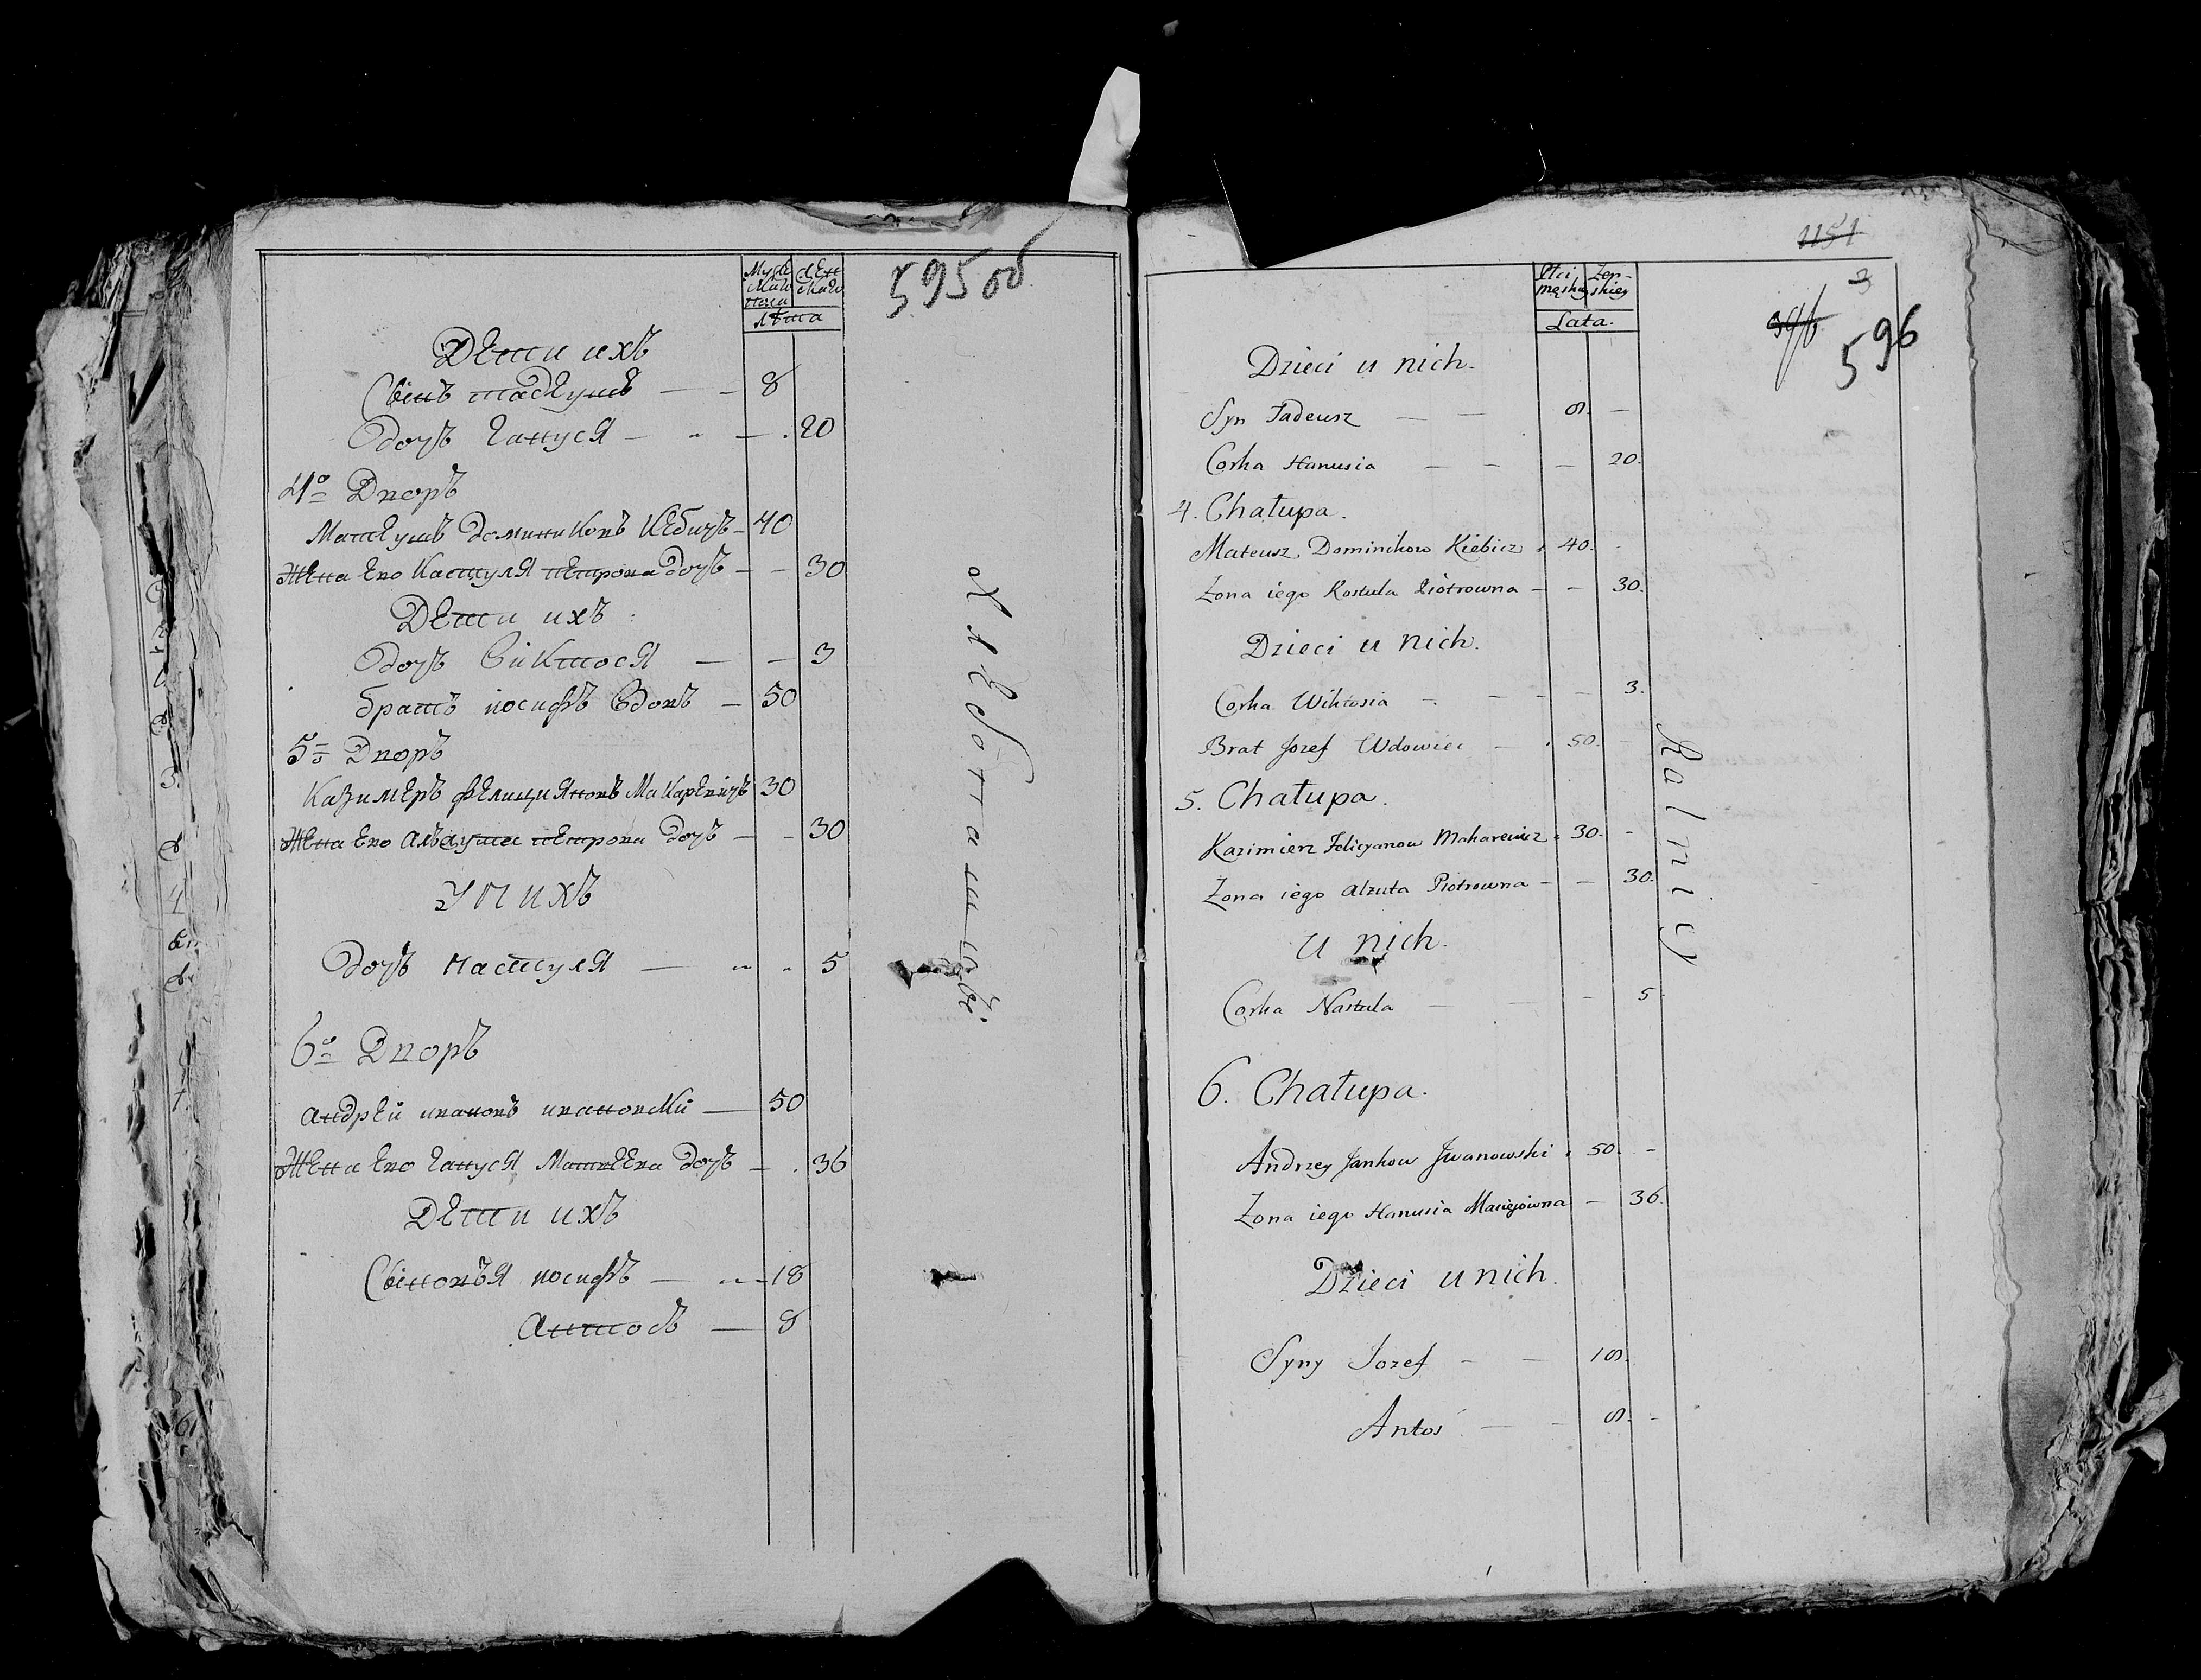 595 об
Мужескаго пола
Женскаго
Лѣта
Дети ихъ
Сынъ тадеушъ — — 8
Дочъ Гануся — " — . 20
4о Дворъ
Матеушъ Доминиковъ Кебичъ — 40
Жена Его Кастуля петрова Дочъ — — 30
Дети ихъ :
Дочъ Виктося — — 3
братъ иосифъ Вдовъ — 50
5о Дворъ
Казимеръ фелицияновъ Макаревичъ 30
Жена Его Алъзута петрова Дочъ — — 30
У Нихъ
Дочъ Настуля — " " 5
6о Дворъ
Андрей ивановъ ивановский — 50
Жена Его Гануся Матвеева Дочъ — . 36
Дети ихъ
Сыновъя иосифъ — 18
Антосъ — 8
Хлебопашцы.
1151
3
596
Płci męskiey
Żeńskiey
Lata.
Dzieci u nich.
Syn Tadeusz — — 8. —
Corka Hanusia — — — 20.
4. Chałupa.
Mateusz Dominikow Kiebicz . 40. -
Zona iego Kostula Piotrowna — — 30.
Dzieci u nich.
Corka Wiktosia — - - - 3.
Brat Jozef Wdowiec — . 50. —
5. Chałupa.
Kazimierz Felicyanow Makarewicz . 30. -
Żona iego Alzuta Piotrowna — — 30.
U nich.
Corka Nastula — — - 5.
6. Chałupa.
Andrzey Jankow Jwanowski . 50. -
Żona iego Hanusia Maciejowna — 36.
Dzieci u nich.
Syny Jozef — — 18.
Antos — — 8. -
Rolnicy